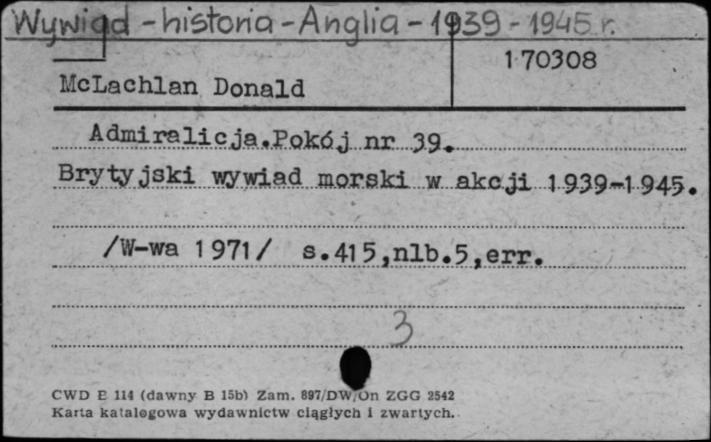 Wywiad - historia - Anglia - 1939 - 1945 r.
170308
McLachlan Donald
Admiralicja.Pokój nr 39.
Brytyjski wywiad morski w akcji 1939-1945.
/W-wa 1971/ s.415,nlb.5,err.
3
CWD E 114 (dawny B 15b) Zam. 897/DW/On ZGG 2542
Karta katalogowa wydawnictw ciągłych i zwartych.